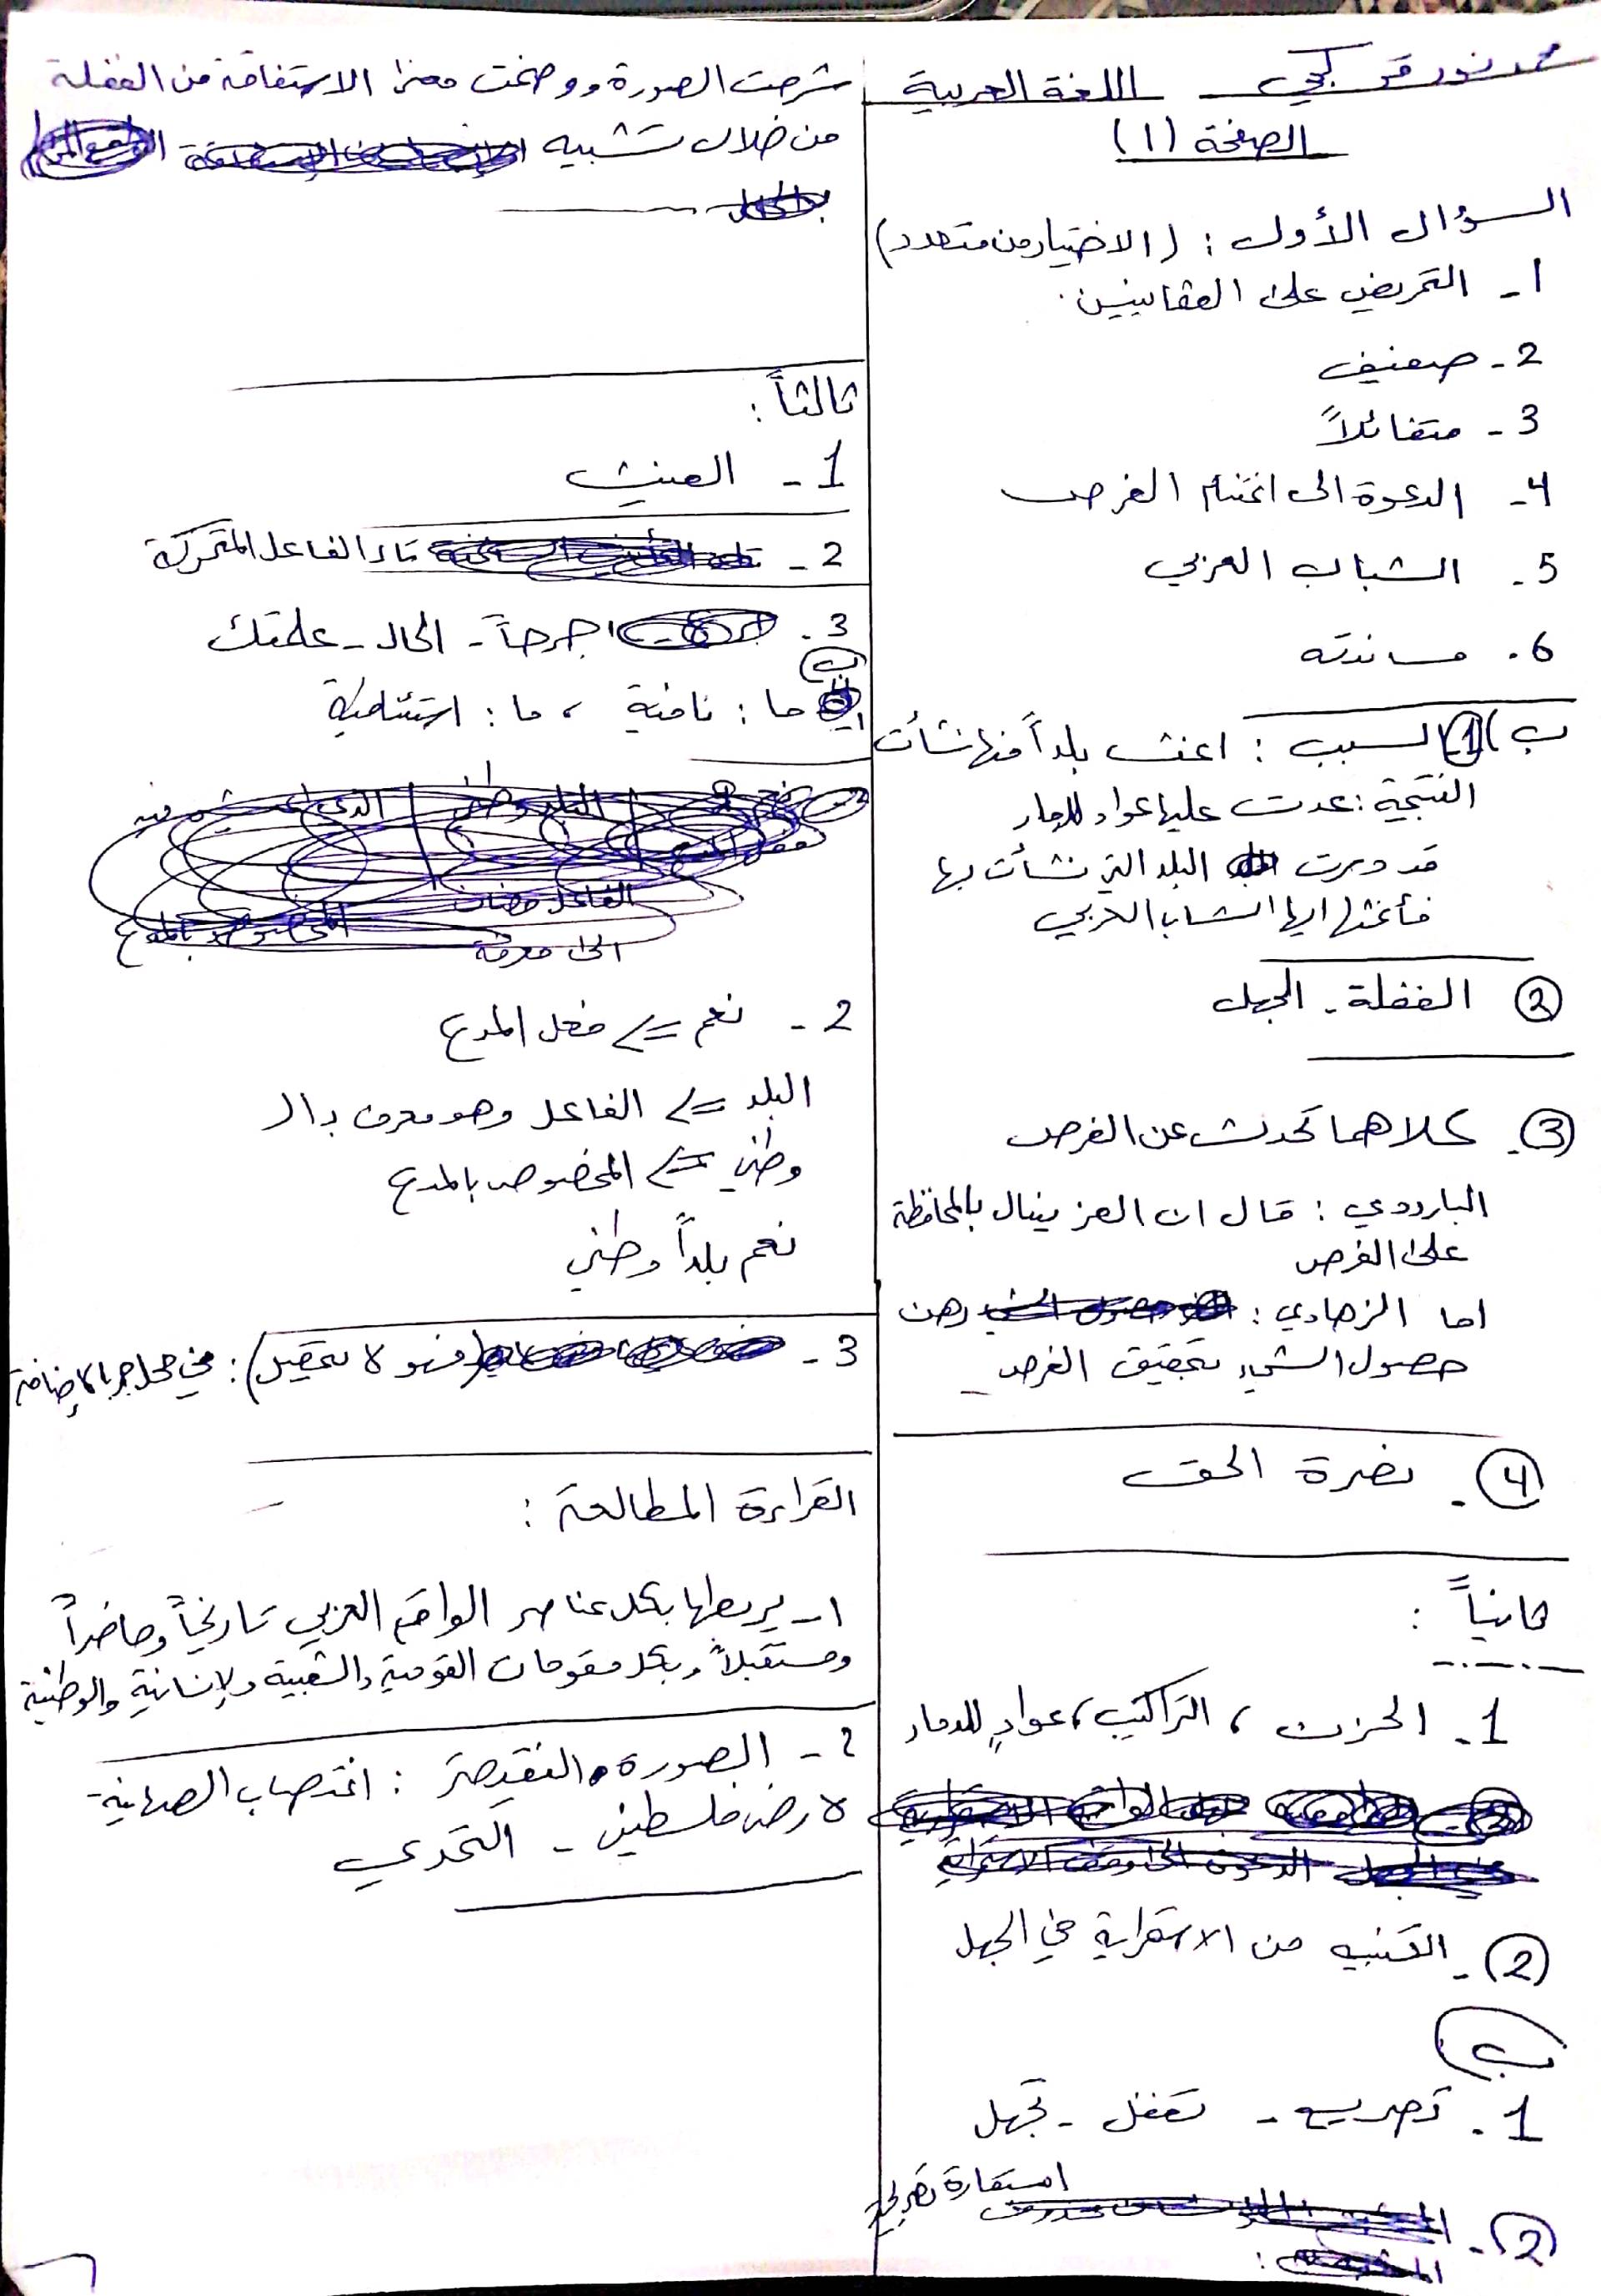 محمد نور قو كجي
اللغة العربية
الصفحة (١)
السؤال الأول : (الاختيار من متعدد)
1- التحريض على العثمانيين.
2- ضعيف
3- متفائلاً
4- الدعوة الى اغتنام الفرص
5. الشباب العربي
6. مساندته
ب) 1 السبب : اغث بلداً منها نشأت
النتيجة : عدت عليها عواد للدمار
قد دمرت البلد التي نشأت بها
فأغثها ايها الشاب العربي
2 الغفلة - الجهل
3. كلاهما تحدث عن الفرص
البارودي : قال ان العز ينال بالمحافظة
على الفرص
اما الزهاوي : رهن
حصول الشيء بتحقيق الفرص
4. نصرة الحق
ثانياً :
1. الحزن ، التراكيب ، عوادٍ للدمار
2- التنبيه من الاستمرارية في الجهل
ب
1. تصريع - تغفل - تجهل
2- استعارة تصريحية
شرحت الصورة ووضحت معنى الاستفاقة من الغفلة
من خلال تشبيه
ثالثاً :
1- العبث
2- تاء الفاعل المتحركة
3. جرحاً - الحال - علمتك
ب
ما : نافية ، ما : استثنائية
2- نعم => فعل المدح
البلد => الفاعل وهو معرف بال
وطني => المخصوص بالمدح
نعم بلداً وطني
3- (فهو لا يحقيل) : في محل جر بالإضافة
القراءة المطالعة :
1- يربطها بكل عناصر الواقع العربي تاريخاً وحاضراً
ومستقبلاً وبكل مقومات القومية والشعبية والإنسانية والوطنية
2- الصورة النقيضة : اغتصاب الصهاينة
لارض فلسطين - التحدي